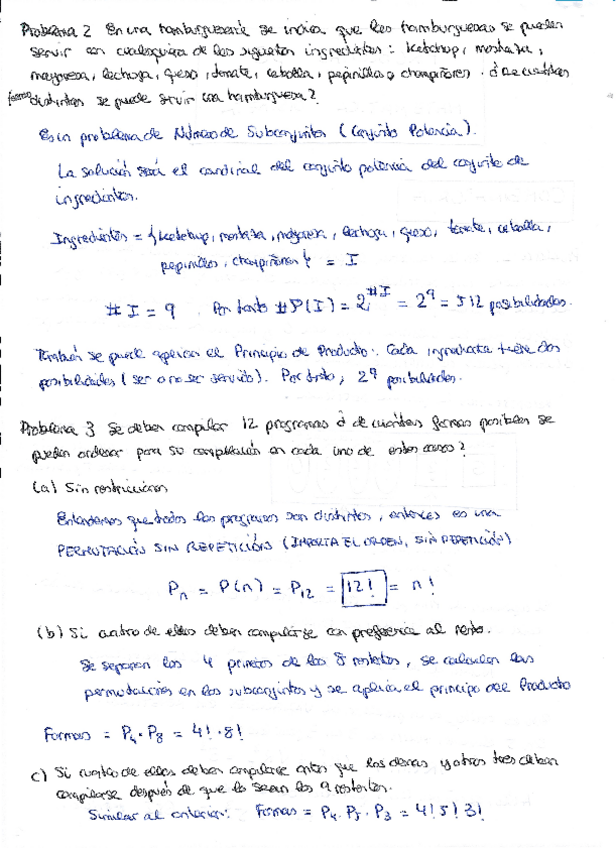 Problema 2 En una hamburguesería se indica que las hamburguesas se pueden
servir con cualesquiera de los siguientes ingredientes: ketchup, mostaza,
mayonesa, lechuga, queso, tomate, cebolla, pepinillos o champiñones. ¿De cuántas
formas distintas se puede servir una hamburguesa?
Es un problema de Número de Subconjuntos (Conjunto Potencia).
La solución será el cardinal del conjunto potencia del conjunto de
ingredientes.
Ingredientes = {ketchup, mostaza, mayonesa, lechuga, queso, tomate, cebolla,
pepinillos, champiñones} = I
#I = 9 Por tanto #P(I) = 2^#I = 2^9 = 512 posibilidades.
También se puede aplicar el Principio de Producto: Cada ingrediente tiene dos
posibilidades (ser o no ser servido). Por tanto, 2^9 posibilidades.
Problema 3 Se deben compilar 12 programas ¿de cuántas formas posibles se
pueden ordenar para su compilación en cada uno de estos casos?
(a) Sin restricciones
Entendemos que todos los programas son distintos, entonces es una
PERMUTACIÓN SIN REPETICIÓN (IMPORTA EL ORDEN, SIN REPETICIÓN)
Pn = P(n) = P12 = 12! = n!
(b) Si cuatro de ellos deben compilarse con preferencia al resto.
Se separan los 4 primeros de los 8 restantes, se calculan las
permutaciones en los subconjuntos y se aplica el principio del Producto
Formas = P4 · P8 = 4! · 8!
c) Si cuatro de ellos deben compilarse antes que los demás y otros tres deben
compilarse después de que lo sean los 9 restantes.
Similar al anterior: Formas = P4 · P5 · P3 = 4! 5! 3!